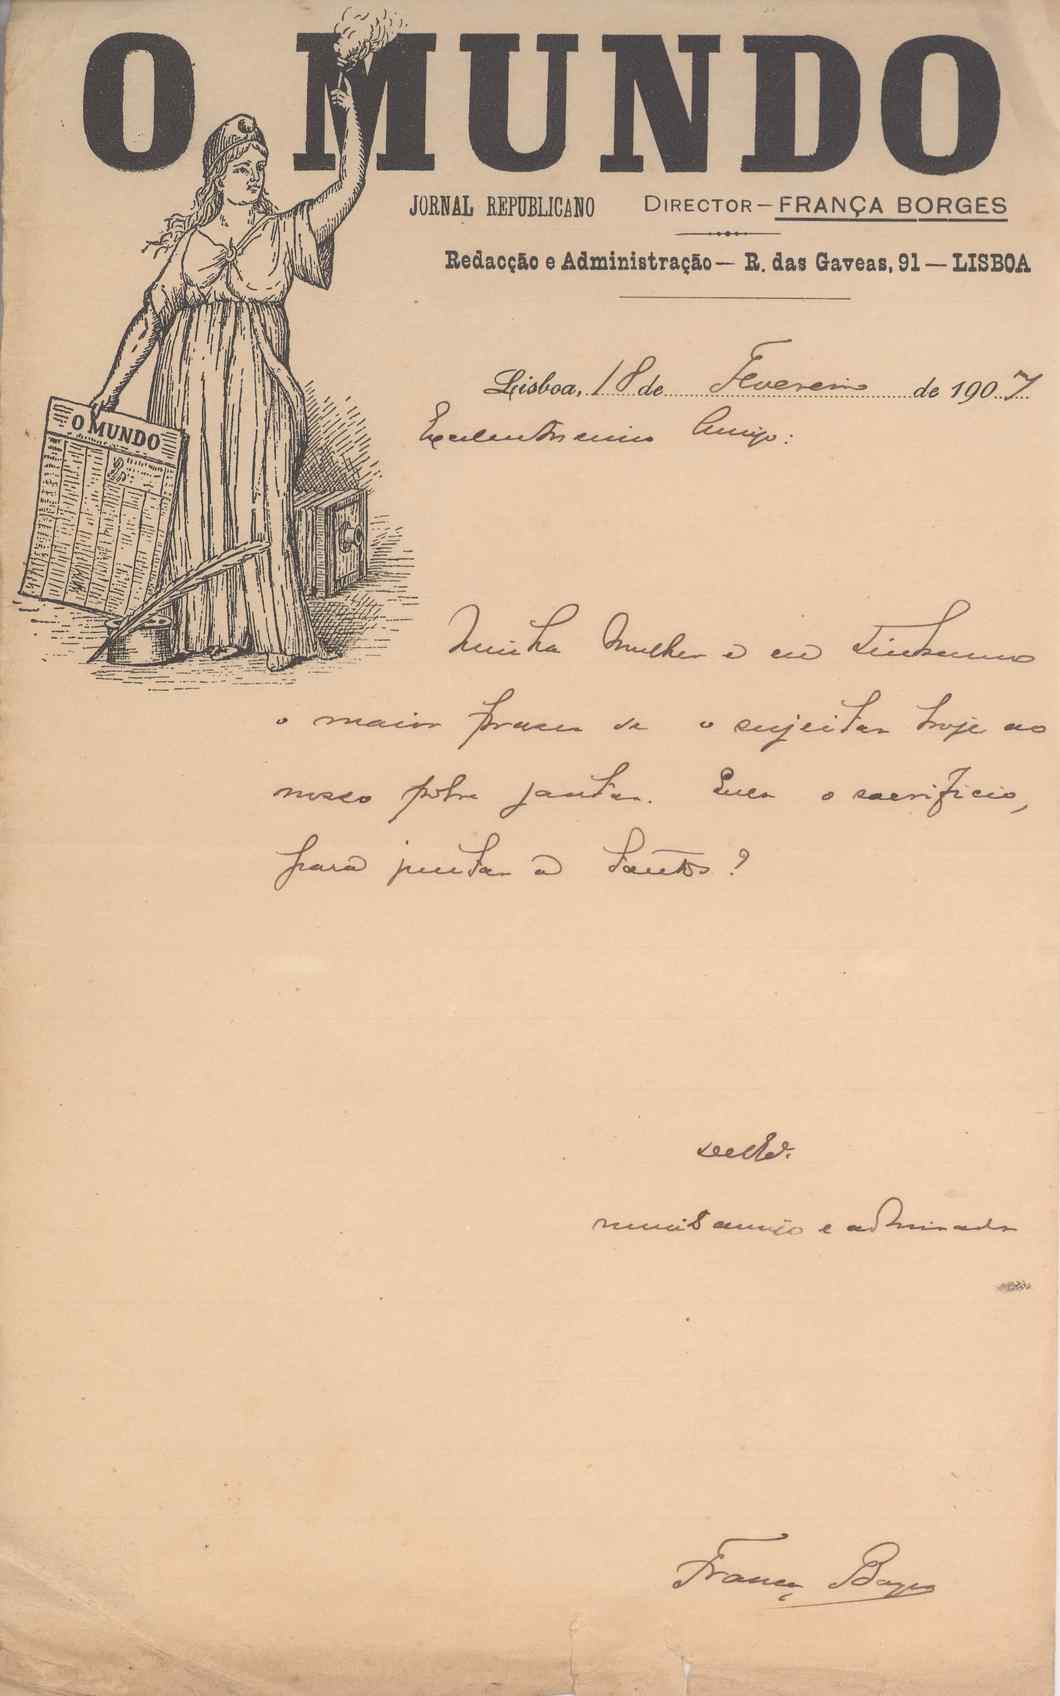 O MUNDO
JORNAL REPUBLICANO
DIRECTOR — FRANÇA BORGES
Redacção e Administração — R. das Gaveas, 91 — LISBOA
Lisboa, 18 de Fevereiro de 1907
Excelentissimo Amigo:
O MUNDO
Minha Mulher e eu tinhamos
o maior prazer de o sujeitar hoje ao
nosso pobre jantar. Quer o sacrificio,
para juntar a tantos?
muito amigo e admirador
França Borges